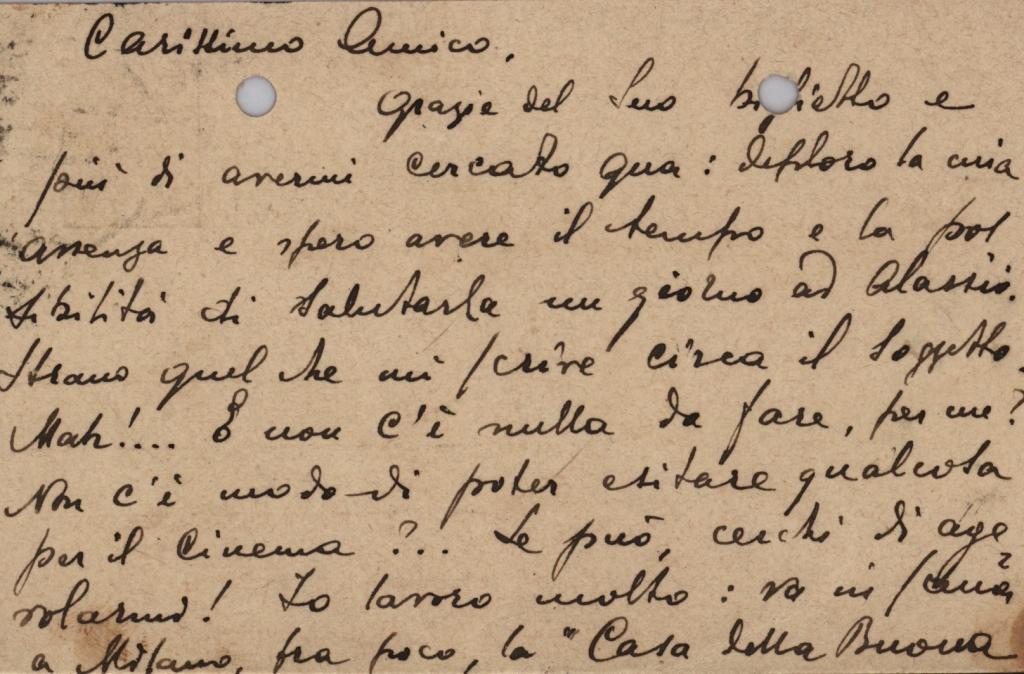 Carissimo Amico,
grazie del Suo biglietto e
più di avermi cercato qua: deploro la mia
assenza e spero avere il tempo e la pos
sibilità di salutarla un giorno ad Alassio.
Strano quel che mi scrive circa il soggetto.
Mah!.... E non c'è nulla da fare, per me?
Non c'è modo di poter esitare qualcosa
per il cinema?.. Se può, cerchi di age
volarmi! Io lavoro molto: va in scena
a Milano, fra poco, la "Casa della Buona